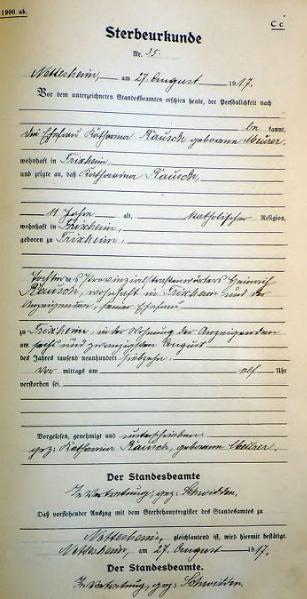 1900 ab.
C c
Sterbeurkunde
Nr. 35.
Nettersheim, am 27. August 1917.
Vor dem unterzeichneten Standesbeamten erschien heute, der Persönlichkeit nach
be kannt,
die Ehefrau Katharina Rausch geborene Meurer,
wohnhaft in Frixheim
und zeigte an, daß Katharina Rausch,
11 Jahre alt, katholischer Religion,
wohnhaft in Frixheim,
geboren zu Frixheim,
Tochter des Provinzialstraßenwärters Heinrich
Rausch, wohnhaft in Frixheim und der
Anzeigenden, seiner Ehefrau
zu Frixheim, in der Wohnung der Anzeigenden
am sechs und zwanzigsten August
des Jahres tausend neunhundert siebzehn
Vor mittags um elf Uhr
verstorben sei.
Vorgelesen, genehmigt und unterschrieben
gez. Katharina Rausch, geborene Meurer.
Der Standesbeamte
In Vertretung, gez.
Daß vorstehender Auszug mit dem Sterbehauptregister des Standesamtes zu
Nettersheim, gleichlautend ist, wird hiermit bestätigt.
Nettersheim, am 27. August 1917.
Der Standesbeamte.
In Vertretung, gez.